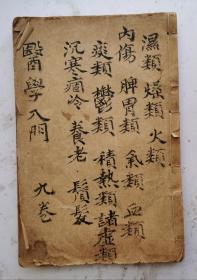 濕類 燥類 火類
內傷 脾胃類 氣類 血類
痰類 鬱類 積熱類 諸虛類
沉寒痼冷 養老 鬚髮
醫學入門 九卷